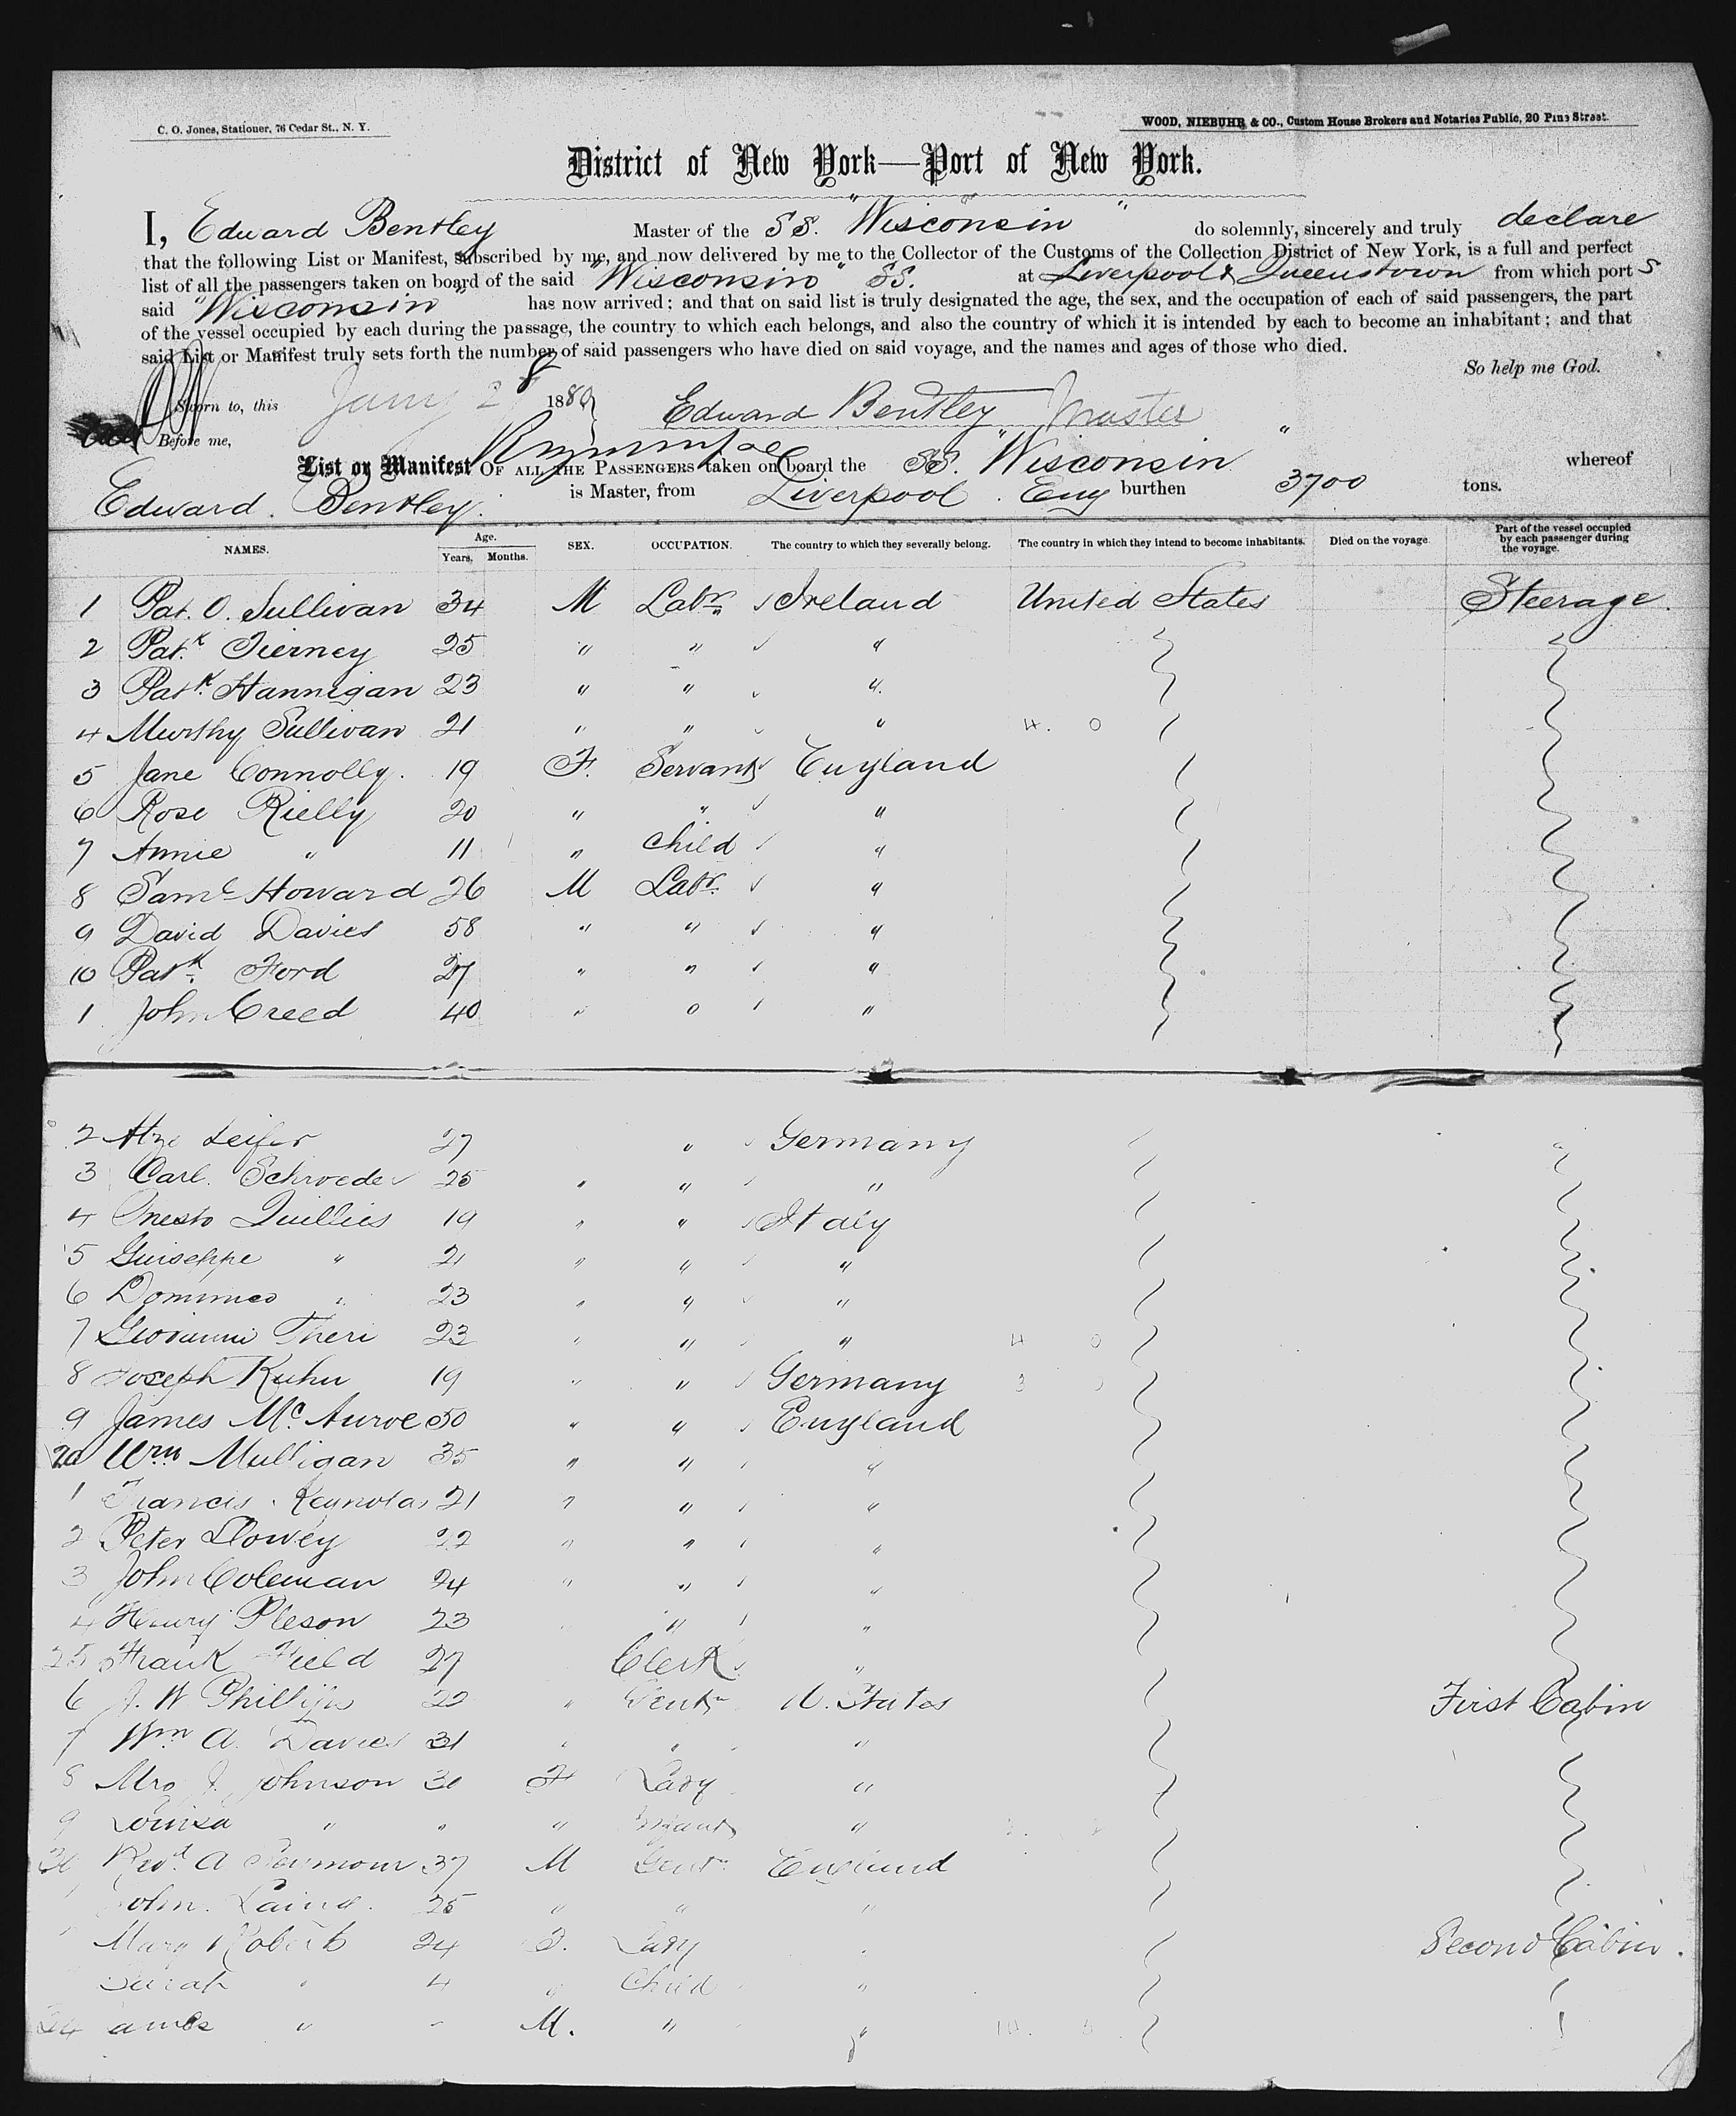 C. O. Jones, Stationer, 76 Cedar St., N. Y.
WOOD, NIEBUHR & CO., Custom House Brokers and Notaries Public, 20 Pine Street.
District of New York—Port of New York.
I, Edward Bentley Master of the SS. "Wisconsin" do solemnly, sincerely and truly declare
that the following List or Manifest, subscribed by me, and now delivered by me to the Collector of the Customs of the Collection District of New York, is a full and perfect
list of all the passengers taken on board of the said "Wisconsin" SS. at Liverpool & Queenstown from which port s
said "Wisconsin" has now arrived; and that on said list is truly designated the age, the sex, and the occupation of each of said passengers, the part
of the vessel occupied by each during the passage, the country to which each belongs, and also the country of which it is intended by each to become an inhabitant; and that
said List or Manifest truly sets forth the number of said passengers who have died on said voyage, and the names and ages of those who died.
So help me God.
Sworn to, this Jany 28 1880
Edward Bentley Master
Before me,
List or Manifest OF ALL THE PASSENGERS taken on board the SS. "Wisconsin" whereof
Edward Bentley. is Master, from Liverpool. Eng burthen 3700 tons.
NAMES. Age. Years. Months. SEX. OCCUPATION. The country to which they severally belong. The country in which they intend to become inhabitants. Died on the voyage. Part of the vessel occupied by each passenger during the voyage.
1 Pat. O. Sullivan 34 M Labr. Ireland United States Steerage.
2 Patk Tierney 25 " " "
3 Patk. Hannigan 23 " " "
4 Murthy Sullivan 21 " " " 4. 0
5 Jane Connolly. 19 F. Servant England
6 Rose Rielly 20 " " "
7 Annie " 11 " Child "
8 Saml Howard 26 M Labr. "
9 David Davies 58 " " "
10 Patk. Ford 27 " " "
1 John Creed 40 " " "
2 27 " Germany
3 Carl. Schroeder 25 " " "
4 Onesto 19 " " Italy
5 Guiseppe " 21 " " "
6 Dominico " 23 " " "
7 Giovanni Theri 23 " " " 4 0
8 Joseph Kuhn 19 " " Germany 3
9 James Mc. 50 " " England
20 Wm Mulligan 35 " " "
1 Francis Reynolds 21 " " "
2 Peter 22 " " "
3 John Coleman 24 " " "
4 Henry Pleson 23 " " "
25 Frank Field 27 Clerk "
6 J. W Phillips 22 " Gentn U. States First Cabin
7 Wm A. Davies 31 " " "
8 Mrs J. Johnson 30 F Lady "
9 Louisa " " " Infant "
30 Revd. A Seymour 37 M Gentn England
John. Laing. 25 " " "
Mary Roberts 24 F. Lady Second Cabin.
Sarah " 4 " Child "
34 James " - M. " "